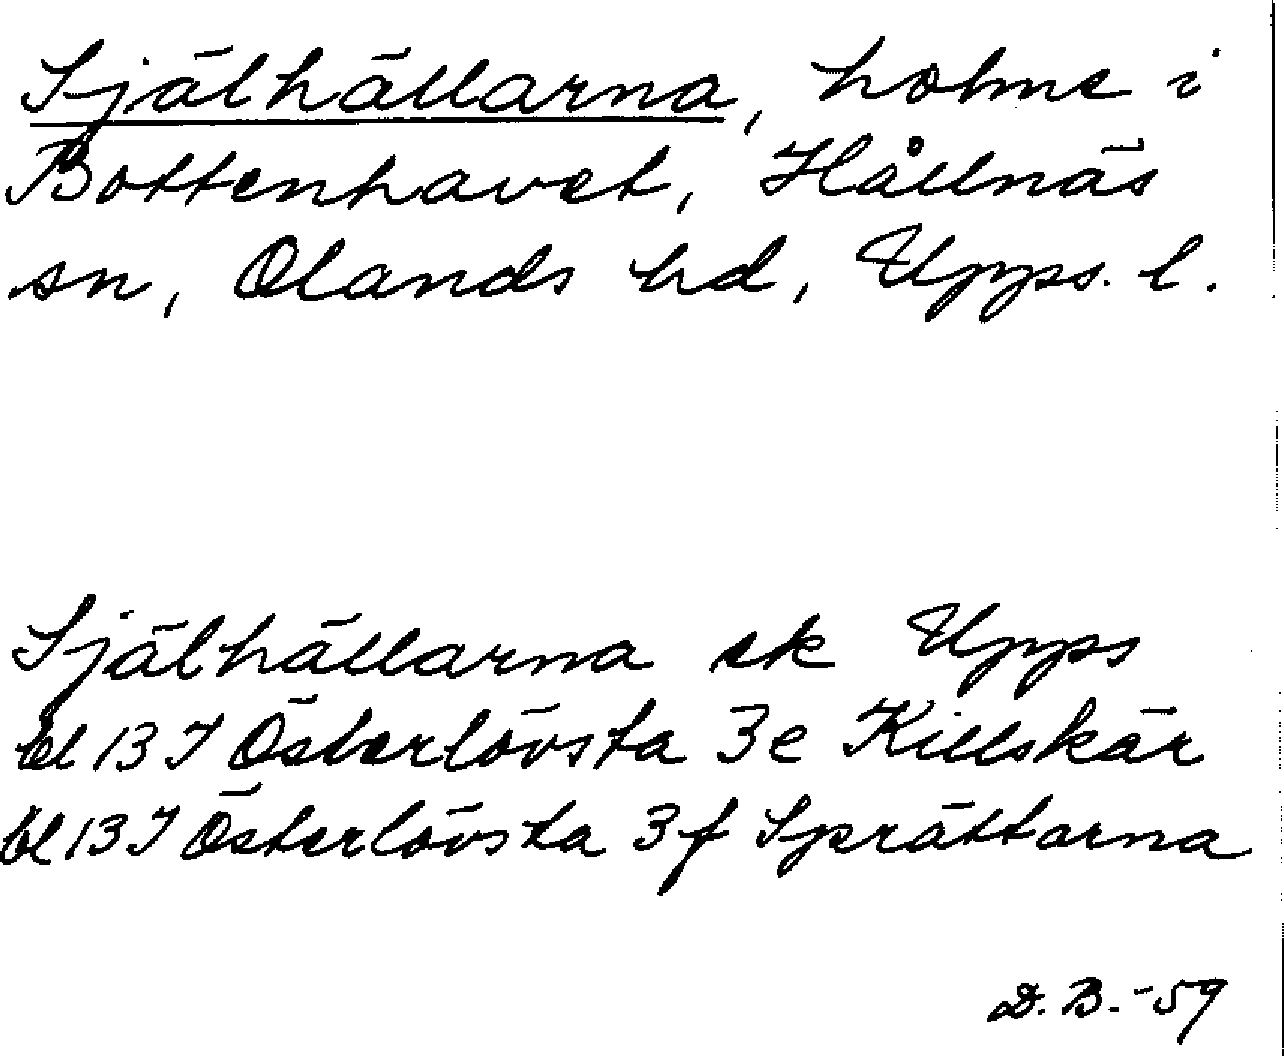 Själhällarna, holme i
Bottenhavet, Hållnäs
sn, Olands hd, Upps. l.
Själhällarna ek Upps
bl 13 I Österlövsta 3e Killskär
bl 13 I Österlövsta 3f Sprättarna
D.B.-59